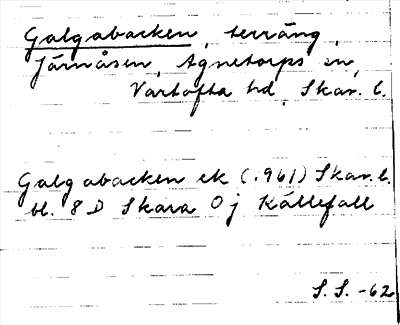 Galgabacken, terräng,
Järnåsen, Agnetorps sn,
Vartofta hd, Skar. l.
Galgabacken ek (1961) Skar. l.
bl. 8 D Skara 0 j Källefall
S.S. -62